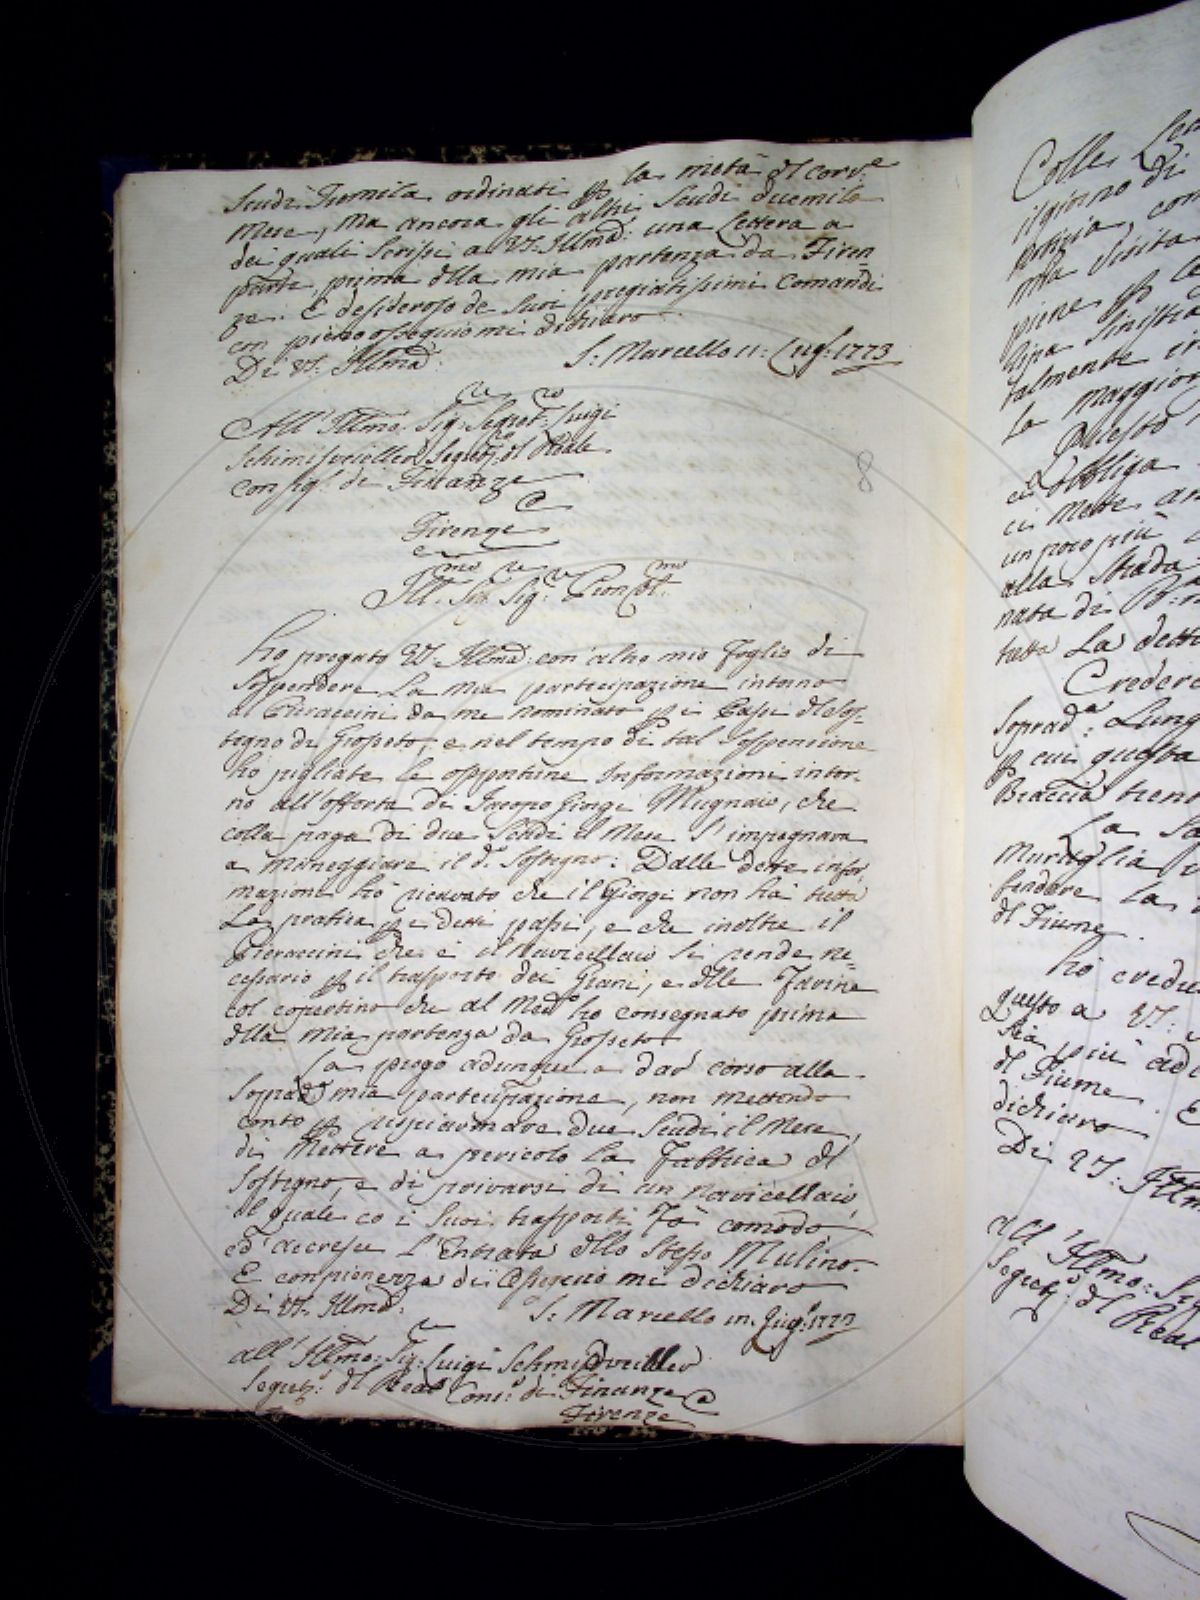 Scudi Tremila ordinati p la metà dl corr.e
Mese, Ma ancora gli altri Scudi duemila
dei quali Scrissi a VS. Illma: una Lettera a
parte prima dlla mia partenza da Firen
ze. E desideroso de Suoi pregiatissimi Comandi
con pieno ossequio mi dichiaro
Di VS. Illma: S. Marcello 11: Lug: 1773
All' Illmo. Sig: Segret: Luigi
Schmidveiller Segret: dl Reale
Consig: di Finanze
Firenze
Ill.mo Sig. Sig.e Pron Col.mo
Ho pregato VS. Illma: con altro mio Foglio di
Sospendere La Mia partecipazione intorno
al Pieraccini da me Nominato p i Passi dl Sos-
tegno di Grosseto, e nel tempo di tal Sospensione
ho pigliate le opportune Informazioni intor-
no all'offerta di Jacopo Giorgi Mugnaio, che
colla paga di due Scudi il Mese S'impegnava
a Maneggiare il d.o Sostegno: Dalle dette infor-
mazioni ho ricavato che il Giorgi non ha tutta
La pratica p i detti passi, e che inoltre il
Pieraccini che è il Navicellaio si rende ne-
cessario p il trasporto dei Grani, e dlle Farine
col copertino che al Med.o ho consegnato prima
dlla Mia partenza da Grosseto
La prego adunque a dar corso alla
Soprad.a mia partecipazione, non mettendo
conto p risparmiare due Scudi il Mese,
di Mettere a pericolo La Fabbrica dl
Sostegno, e di privarsi di un navicellaio,
il quale co i Suoi trasporti Fà comodo,
ed accresce l'Entrata dllo Stesso Mulino.
E con pienezza di Ossequio mi dichiaro
Di VS. Illma: S. Marcello 11. Lug: 1773
all' Illmo: Sig: Luigi Schmidveiller
Segret: dl Real Cons: di Finanze
Firenze
8
Colle
il giorno di
notizia, con
mia Visita
piene p
Ripa Sinistra
talmente
La maggior
Questo
obbliga
ci Mette
un poco più
alla Strada
nata di
tutta La detta
Credere
Soprad.a: Lung
p cui questa
Braccia
La
Muraglia
fondare La
dl Fiume.
hò
questo a VS:
Sia più
dl Fiume. E
dichiaro
Di VS: Illm
All' Illmo: Sig
Segret: dl Real